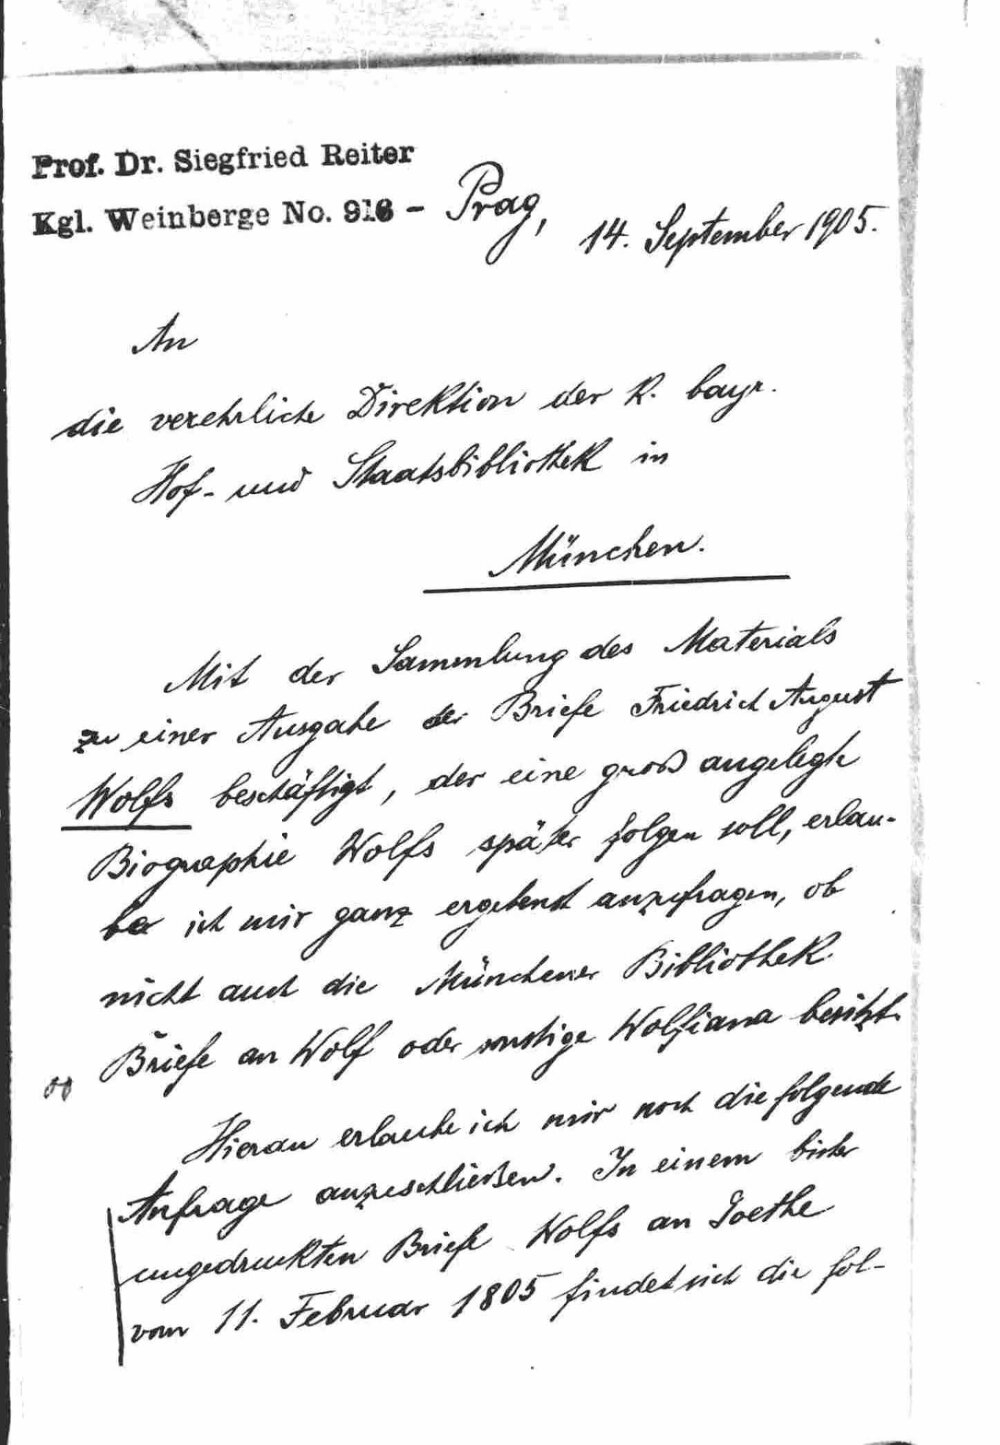 Prof. Dr. Siegfried Reiter
Kgl. Weinberge No. 916 – Prag,
14. September 1905.
An
die verehrliche Direktion der K. bayr.
Hof- und Staatsbibliothek in
München.
Mit der Sammlung des Materials
zu einer Ausgabe der Briefe Friedrich August
Wolfs beschäftigt, der eine groß angelegte
Biographie Wolfs später folgen soll, erlau-
be ich mir ganz ergebenst anzufragen, ob
nicht auch die Münchener Bibliothek
Briefe an Wolf oder sonstige Wolfiana besitzt.
Hieran erlaube ich mir noch die folgende
Anfrage anzuschließen. In einem bisher
ungedruckten Briefe Wolfs an Goethe
vom 11. Februar 1805 findet sich die fol-